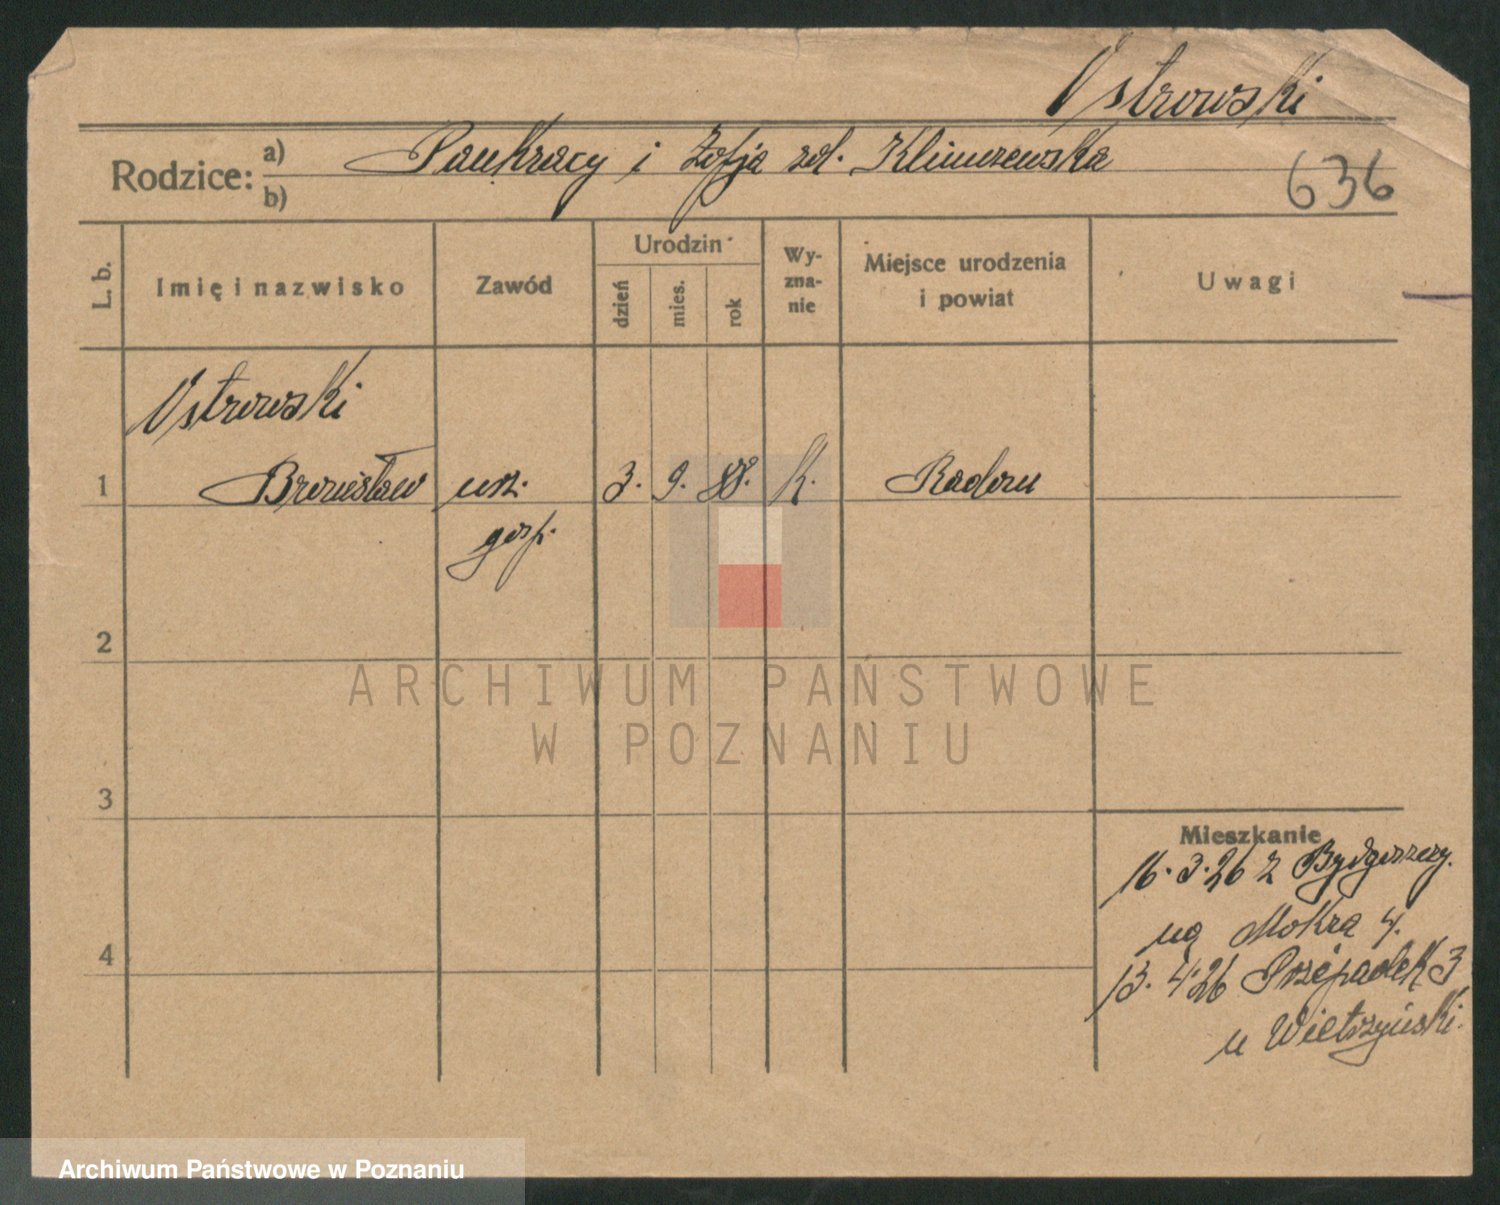 Ostrowski
Rodzice: a) Pankracy i Zofja zd. Klimczewska
b)
636
L. b.
Imię i nazwisko
Zawód
Urodzin
dzień
mies.
rok
Wy-
zna-
nie
Miejsce urodzenia
i powiat
Uwagi
Ostrowski
1 Bronisław urz. 3. 9. 88. k. Radom
gosp.
2
3
4
Mieszkanie
16.3.26 z Bydgoszczy.
na Mokra 4.
13.4.26 Przepadek 3
u Wietrzyński.
ARCHIWUM PAŃSTWOWE
W POZNANIU
Archiwum Państwowe w Poznaniu